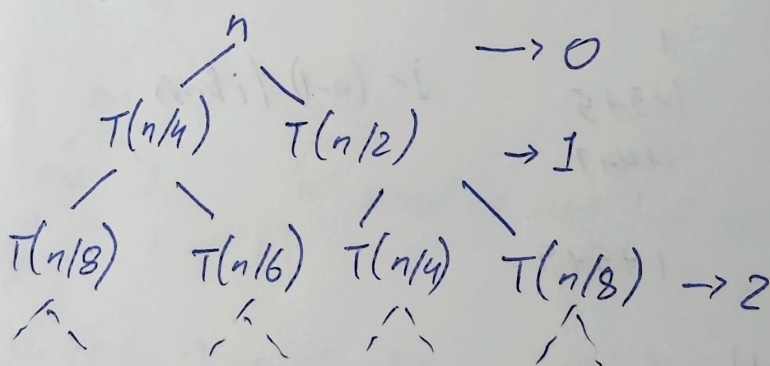 n → 0
T(n/4) T(n/2) → 1
T(n/8) T(n/6) T(n/4) T(n/8) → 2